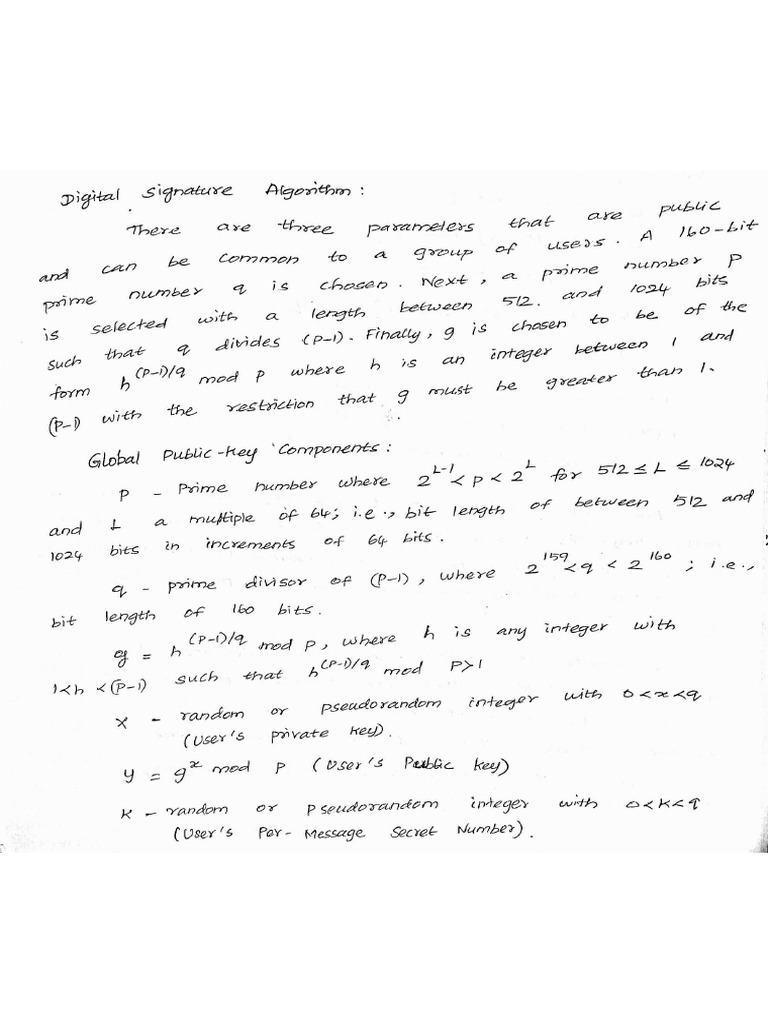 Digital Signature Algorithm :
There are three parameters that are public
and can be common to a group of users. A 160-bit
prime number q is chosen. Next, a prime number P
is selected with a length between 512. and 1024 bits
such that q divides (P-1). Finally, g is chosen to be of the
form h^(P-1)/q mod P where h is an integer between 1 and
(P-1) with the restriction that g must be greater than 1.
Global Public-Key Components :
P - Prime number where 2^L-1 < P < 2^L for 512 ≤ L ≤ 1024
and L a multiple of 64; i.e., bit length of between 512 and
1024 bits in increments of 64 bits.
q - prime divisor of (P-1), where 2^159 < q < 2^160 ; i.e.,
bit length of 160 bits.
g = h^(P-1)/q mod P, where h is any integer with
1<h <(P-1) such that h^(P-1)/q mod P>1
X - random or pseudorandom integer with 0<x<q
(User's private key).
y = g^x mod P (User's Public key)
K - random or pseudorandom integer with 0<K<q
(User's Per-Message Secret Number).